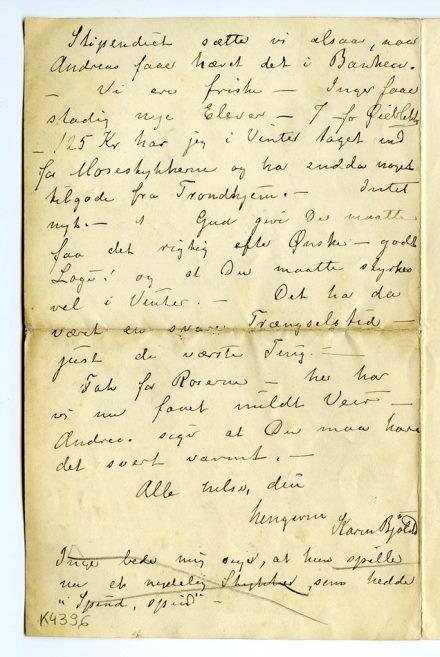 Stipendiet sætte vi alsaa, naar
Andreas faaer hævet det i Banken.
— Vi ere friske — Inger faaer
stadig nye Elever — 7 for Øieblikk
— 125 Kr har jeg i Vinter taget ind
for Mosestykkerne og ha endda noget
tilgode fra Trondhjem. — Intet
nyt. — Gud give Du maatte
faa det rigtig efter Ønske — godt
Logi! og at Du maatte styrkes
vel i Vinter. — Det ha da
været en svare Trængselstid —
just de værste Ting. —
Tak for Roserne — her har
vi nu faaet mildt Veir —
Andreas siger at Du maa have
det svært varmt. —
Alle hilse, din
hengivne
Karen Bjølstad
Inge bede mig sige, at hun spille
nu et nydelig Stykke, som hedde
"Spind, spind" —
K4396